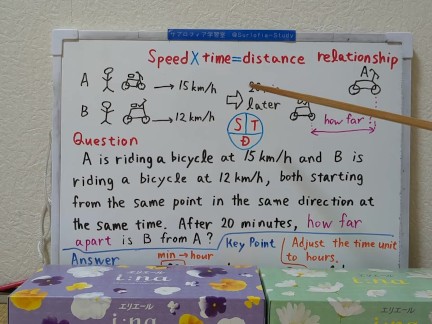 Speed×time=distance relationship
A → 15 km/h
B → 12 km/h
later
A
how far
S T
D
Question
A is riding a bicycle at 15 km/h and B is
riding a bicycle at 12 km/h, both starting
from the same point in the same direction at
the same time. After 20 minutes, how far
apart is B from A?
Key Point
Adjust the time unit
to hours.
Answer
min→hour
エリエール
i:na
エリエール
i:na